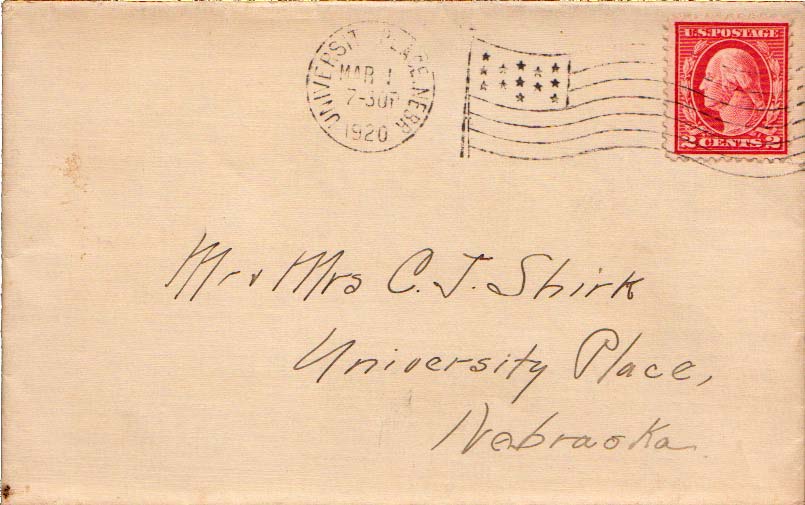 UNIVERSIT PLACE, NEBR.
MAR 1
7-30P
1920
U.S. POSTAGE
2 CENTS 2
Mr & Mrs C. J. Shirk
University Place,
Nebraska